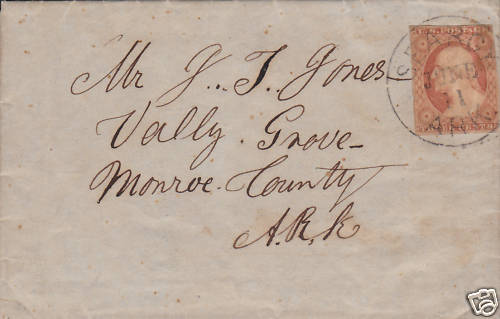 Mr J.. T. Jones
Vally Grove
Monroe County
A.R.k
JUNE
11